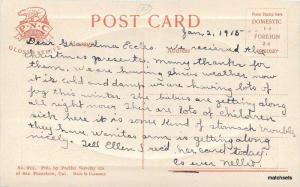 POST CARD
Place Stamp here
DOMESTIC
1¢
FOREIGN
2¢
Jan. 2, 1915
Dear Grandma Eccles. We received all our
Christmas presents. Many thanks for
them. We are having nice weather now
it is cold and damp we are having lots of
fog this winter. the babies are getting along
all right now. Their are lots of children
sick here it is some kind of stomach trouble
they have. Wanitas arm is getting along
nicely. Tell Ellen I recd. her card today.
As ever Nellie
Pub. by Pacific Novelty Co.
of San Francisco, Cal. Made in Germany
matchsets